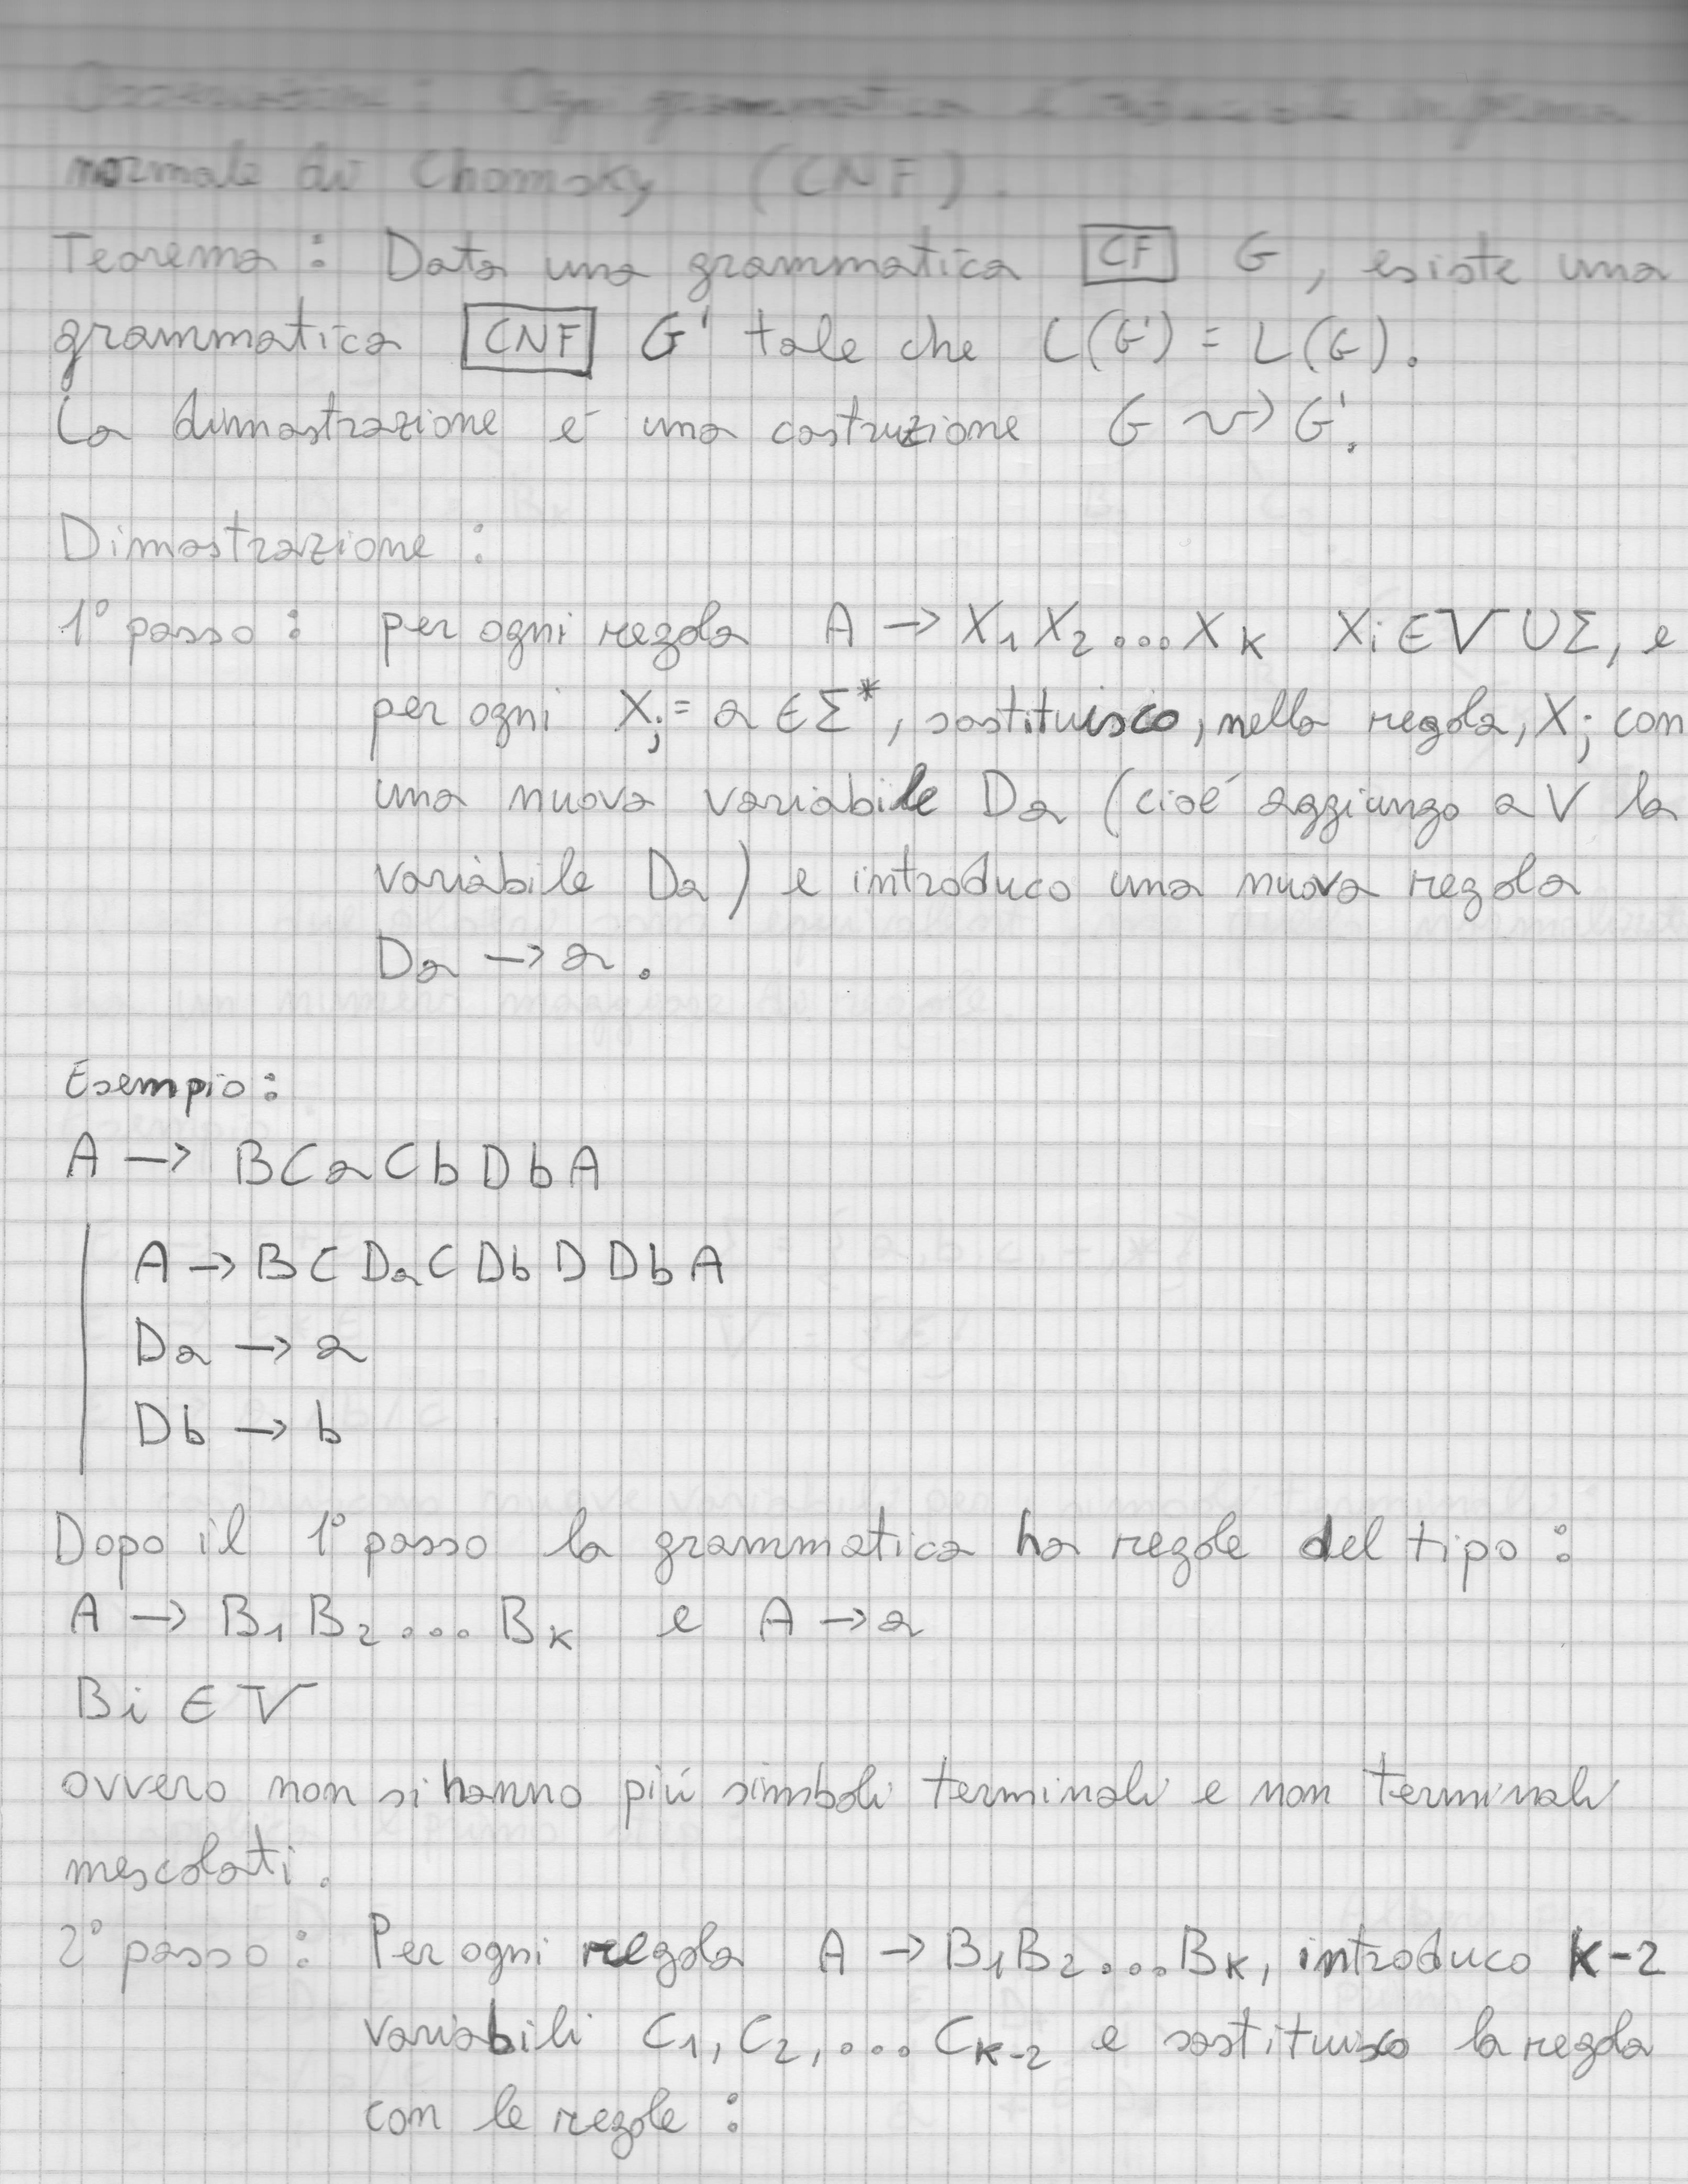 Osservazione : Ogni grammatica è riducibile in forma
normale di Chomsky (CNF).
Teorema : Data una grammatica CF G, esiste una
grammatica CNF G' tale che L(G') = L(G).
La dimostrazione é una costruzione G ⤳ G'.
Dimostrazione :
1° passo : per ogni regola A → X₁ X₂ ... X_K Xi ∈ V ∪ Σ, e
per ogni Xj = a ∈ Σ*, sostituisco, nella regola, Xj con
una nuova variabile Da (cioé aggiungo a V la
variabile Da) e introduco una nuova regola
Da → a.
Esempio :
A → B C a C b D b A
A → B C Da C Db D Db A
Da → a
Db → b
Dopo il 1° passo la grammatica ha regole del tipo :
A → B₁ B₂ ... B_K e A → a
Bi ∈ V
ovvero non si hanno piú simboli terminali e non terminali
mescolati.
2° passo : Per ogni regola A → B₁B₂...B_K, introduco K-2
variabili C₁, C₂, ... C_K-2 e sostituisco la regola
con le regole :